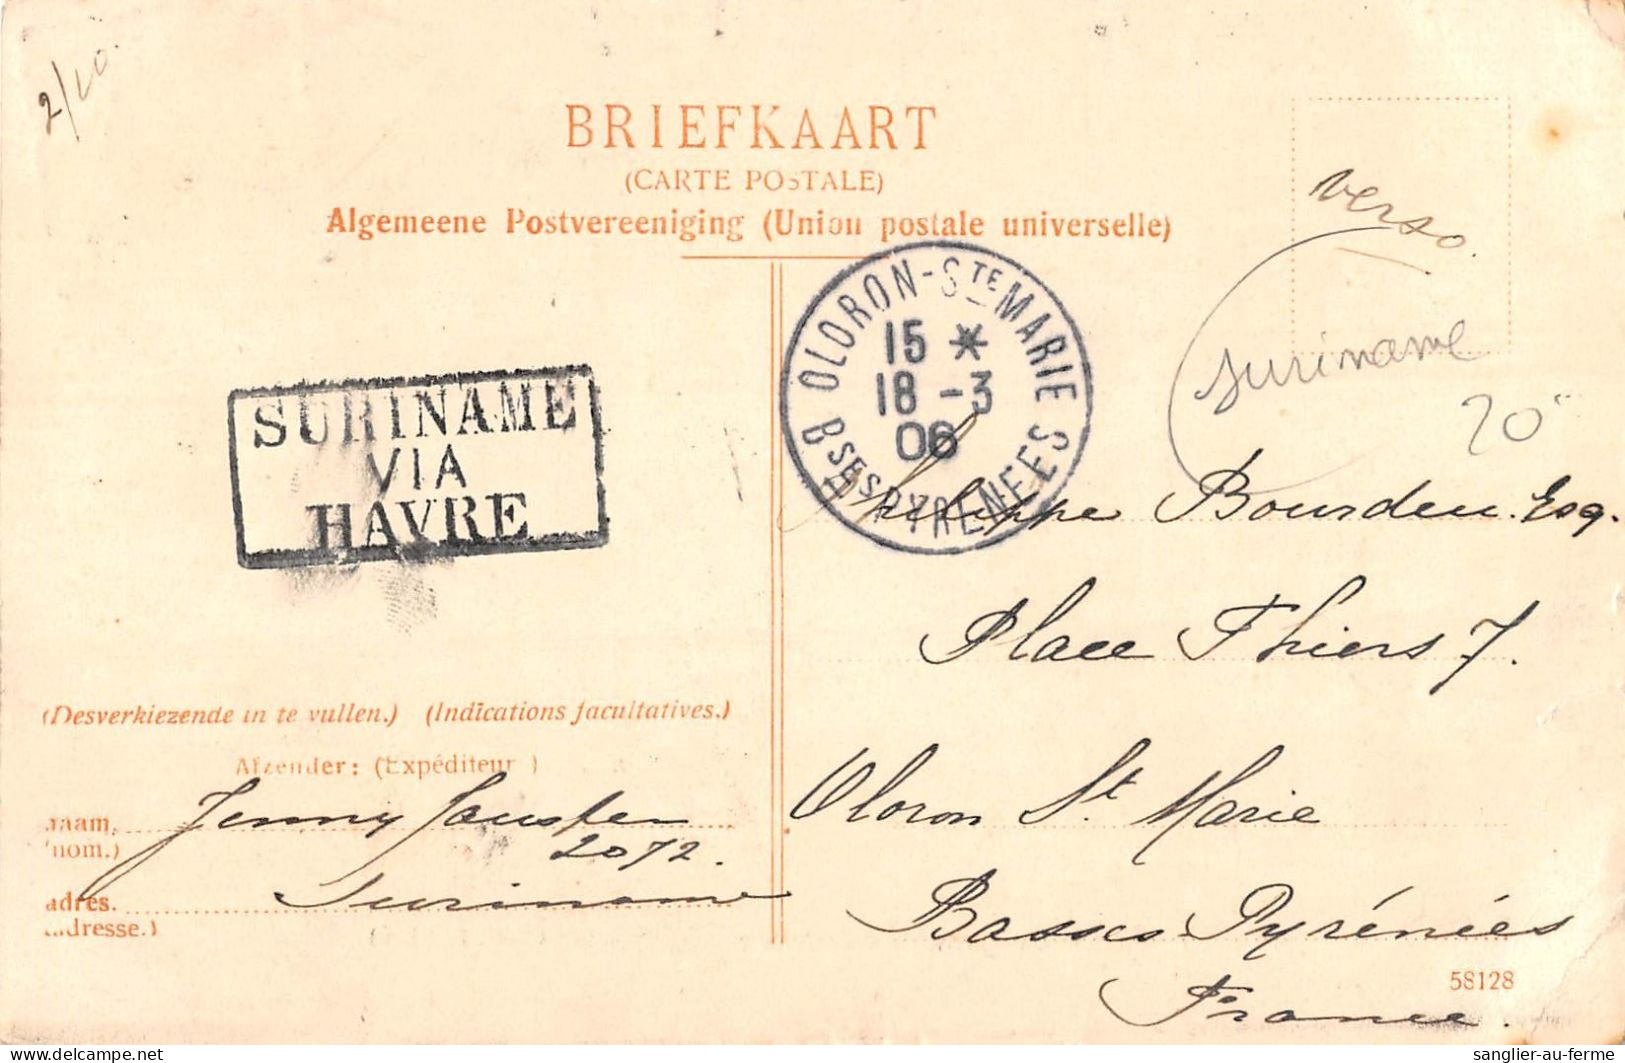 2/
BRIEFKAART
(CARTE POSTALE)
Algemeene Postvereeniging (Union postale universelle)
verso
suriname
OLORON-STE MARIE
15 *
18 -3
06
BSES PYRENEES
SURINAME
VIA
HAVRE
Philippe Bourdeu. Esq.
Place Thiers 7.
Oloron St. Marie
Basses Pyrénées
France.
(Desverkiezende in te vullen.) (Indications facultatives.)
Afzender: (Expéditeur)
naam, Jenny
nom.) 2072.
adres. Suriname
adresse.)
58128
sanglier-au-ferme